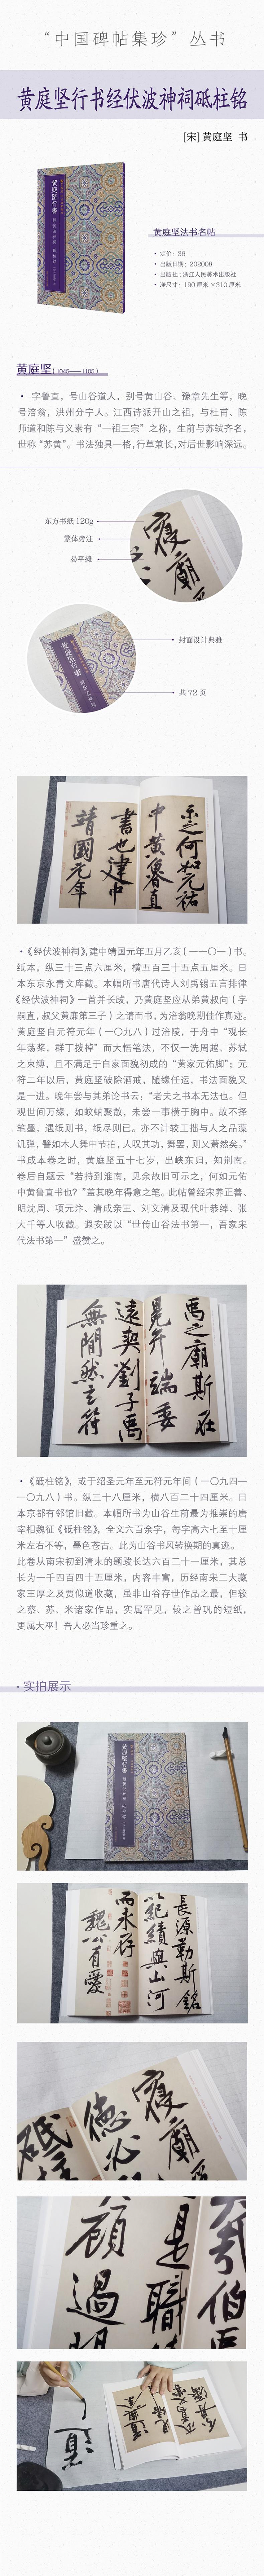 “中国碑帖集珍”丛书
黄庭坚行书经伏波神祠砥柱铭
[宋]黄庭坚 书
黄庭坚行書
黄庭坚法书名帖
• 定价：36
• 出版日期：202008
• 出版社：浙江人民美术出版社
• 净尺寸：190 厘米 ×310 厘米
黄庭坚(1045——1105)
• 字鲁直，号山谷道人，别号黄山谷、豫章先生等，晚
号涪翁，洪州分宁人。江西诗派开山之祖，与杜甫、陈
师道和陈与义素有“一祖三宗”之称，生前与苏轼齐名，
世称“苏黄”。书法独具一格，行草兼长，对后世影响深远。
东方书纸 120g
繁体旁注
易平摊
寝
廟
封面设计典雅
共 72 页
黄庭坚行書
示之何如元祐
中黄魯直
書也建中
靖國元年
•《经伏波神祠》，建中靖国元年五月乙亥（一一〇一）书。
纸本，纵三十三点六厘米，横五百三十五点五厘米。日
本东京永青文库藏。本幅所书唐代诗人刘禹锡五言排律
《经伏波神祠》一首并长跋，乃黄庭坚应从弟黄叔向（字
嗣直，叔父黄廉第三子）之请而书，为涪翁晚期佳作真迹。
黄庭坚自元符元年（一〇九八）过涪陵，于舟中“观长
年荡桨，群丁拨棹”而大悟笔法，不仅一洗周越、苏轼
之束缚，且不满足于自家面貌初成的“黄家元佑脚”；元
符二年以后，黄庭坚破除酒戒，随缘任运，书法面貌又
是一进。晚年尝与其弟论书云：“老夫之书本无法也。但
观世间万缘，如蚊蚋聚散，未尝一事横于胸中。故不择
笔墨，遇纸则书，纸尽则已。亦不计较工拙与人之品藻
讥弹，譬如木人舞中节拍，人叹其功，舞罢，则又萧然矣。”
书成本卷之时，黄庭坚五十七岁，出峡东归，知荆南。
卷后自题云“若持到淮南，见余故旧可示之，何如元佑
中黄鲁直书也？”盖其晚年得意之笔。此帖曾经宋养正善、
明沈周、项元汴、清成亲王、刘文清及现代叶恭绰、张
大千等人收藏。遐安跋以“世传山谷法书第一，吾家宋
代法书第一”盛赞之。
禹之廟斯在
冕弁端委
遠契劉子禹
無間然玄符
•《砥柱铭》，或于绍圣元年至元符元年间（一〇九四—
一〇九八）书。纵三十八厘米，横八百二十四厘米。日
本京都有邻馆旧藏。本幅所书为山谷生前最为推崇的唐
宰相魏征《砥柱铭》，全文六百余字，每字高六七至十厘
米左右不等，墨色苍古。此为山谷书风转换期的真迹。
此卷从南宋初到清末的题跋长达六百二十一厘米，其总
长为一千四百四十五厘米，内容丰富，历经南宋二大藏
家王厚之及贾似道收藏，虽非山谷存世作品之最，但较
之蔡、苏、米诸家作品，实属罕见，较之曾巩的短纸，
更属大巫！吾人必当珍重之。
• 实拍展示
黄庭坚行書
長源勒斯銘
紀績與山河
而永存
魏公有愛
寝
廟
德
砥
顧
過
是
職
伯
道